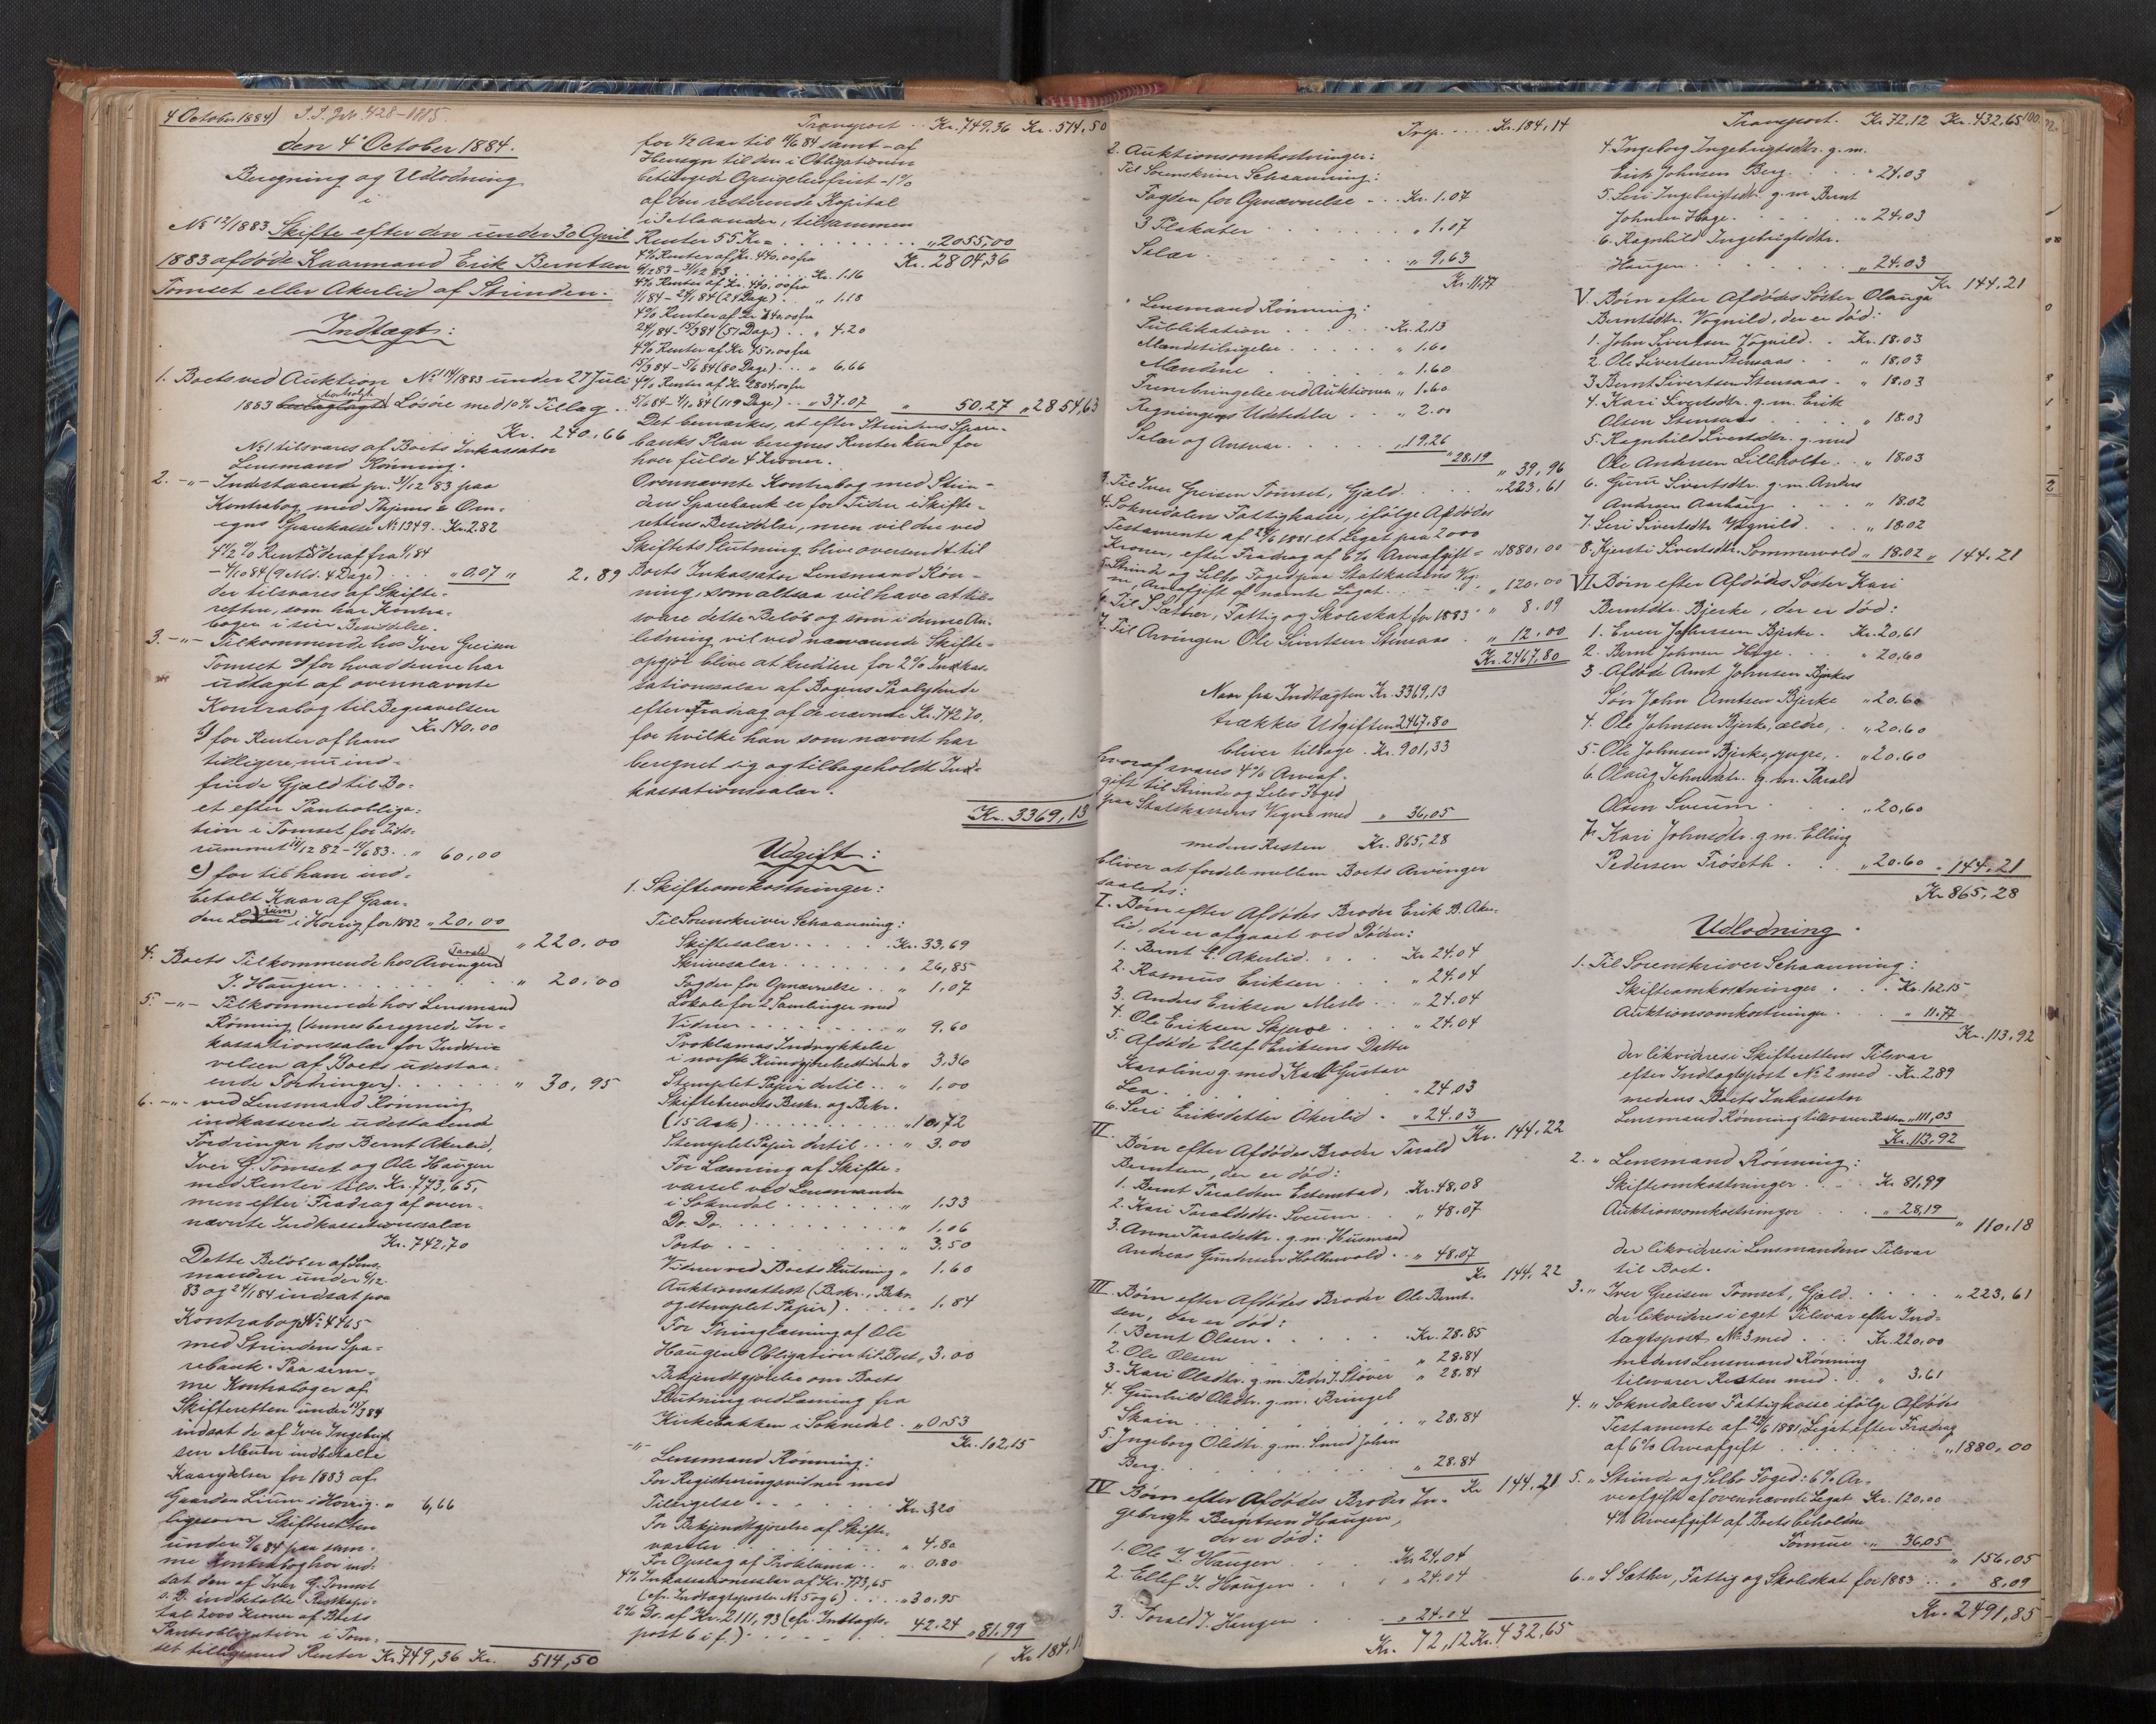 4 October 1884) S.S. Jr. 428-1885.
den 4de October 1884.
Beregning og Udlodning
i
No 12/1883 Skifte efter den under 30 April
1883 afdöde Kaarmand Erik Berntsen
Tomset eller Akerlid af Strinden.
Indtægt:
1. Boets ved Auktion No 14/1883 under 27 Juli
1883 bortsolgte Lösöre med 10% Tillæg
Kr. 240.66
No 1 tilsvares af Boets Inkassator
Lensmand Rönning.
2. -"- Indestaaende pr. 31/12 83 paa
Kontrabog med Thjems & Om-
egns Sparekasse No 1349. Kr. 2.82
4 1/2 % Renter deraf fra 1/1 84
- 4/10 84 (9 Md. 4 Dage) . . " 0.07 " 2.89
der tilsvares af Skifte-
retten, som har Kontra-
bogen i sin Besiddelse.
3. -"- Tilkommende hos Iver Greisen
Tomset a) for hvad denne har
udtaget af ovennævnte
Kontrabog til Begravelsen
Kr. 140.00
b) for Renter af hans
tidligere, nu ind-
friede Gjæld til Bo-
et efter Panteobliga-
tion i Tomset for Tids-
rummet 11/12 82 - 11/6 83. . " 60,00
c) for til ham ind-
betalt Kaar af Gaar-
den Lium i Horrig for 1882 " 20,00
" 220,00
4. Boets Tilkommende hos Arvingen Tarald
J. Haugen . . . . . " 20.00
5. -"- Tilkommende hos Lensmand
Rönning (dennes beregnede In-
kassationssalær for Inddri-
velsen af Boets udestaa-
ende Fordringer) . . . . " 30,95
6. -"- ved Lensmand Rönning
indkasserede udestaaende
Fordringer hos Bernt Akerlid,
Iver G. Tomset og Ole Haugen
med Renter tils. Kr. 773,65,
men efter Fradrag af oven-
nævnte Indkassationssalær
Kr. 742,70
Dette Belöb er af Lens-
manden under 6/12
83 og 24/1 84 indsat paa
Kontrabog No 4465
med Strindens Spa-
rebank. Paa sam-
me Kontrabog er af
Skifteretten under 15/3 84
indsat de af Iver Ingebrigt-
sen indbetalte
Kaarydelser for 1883 af
Gaarden Lium i Horrig. " 6,66
ligesom Skifteretten
under 5/6 84 paa sam-
me Kontrabog har ind-
sat den af Iver G. Tomset
s. D. indbetalte Restkapi-
tal 2000 Kroner af Boets
Panteobligation i Tom-
set tilligemed Renter Kr. 749,36 Kr. 514,50
Transport . . Kr. 749.36 Kr. 514,50
for 1/2 Aar til 11/6 84 samt - af
Hensyn til den i Obligationen
betingede Opsigelsesfrist - 1%
af den resterende Kapital
i 3 Maaneder, tilsammen
Renter 55 Kr. = . . . . . . " 2055,00
Kr. 2804,36
4% Renter af Kr. 440.00 fra
6/12 83 - 31/12 83 . . . . . . Kr. 1.16
4% Renter af Kr. 440.00 fra
1/1 84 - 24/1 84 (24 Dage) . . " 1.18
4% Renter af Kr. 740.00 fra
24/1 84 - 15/3 84 (51 Dage) . . " 4.20
4% Renter af Kr. 750.00 fra
15/3 84 - 5/6 84 (80 Dage) . . " 6,66
4% Renter af Kr. 2804,00 fra
5/6 84 - 4/10 84 (119 Dage) . . " 37.07 " 50.27 " 2854,63
Det bemærkes, at efter Strindens Spare-
banks Plan beregnes Renter kun for
hver fulde 4 Kroner.
Ovennævnte Kontrabog med Strin-
dens Sparebank er for Tiden i Skifte-
rettens Besiddelse, men vil den ved
Skiftets Slutning blive oversendt til
Boets Inkassator Lensmand Rön-
ning, som altsaa vil have at til-
svare dette Belöb og som i denne An-
ledning vil ved nærværende Skifte-
opgjör blive at kreditere for 2% Indkas-
sationssalær af Bogens Paalydende
efter Fradrag af de nævnte Kr. 742,70,
for hvilke han som nævnt har
beregnet sig og tilbageholdt Ind-
kassationssalær.
Kr. 3369,13
Udgift:
1. Skifteomkostninger:
Til Sorenskriver Schaanning:
Skiftesalær . . . . . . Kr. 33.69
Skrivesalær . . . . . . " 26,85
Fogden for Opnævnelse . . " 1.07
Lokale for 2 Samlinger med
Vidner . . . . . . . . " 9.60
Proklamas Indrykkelse
i norsk Kundgjörelsestidende " 3.36
Stemplet Papir dertil . . " 1.00
Skiftebrevets Beskr. og Bekr.
(15 Ark) . . . . . . . . " 10,72
Stemplet Papir dertil . . . " 3.00
For Læsning af Skifte-
varsel ved Lensmanden
i Soknedal . . . . . . . " 1.33
Do. Do. . . . . . . . . " 1.06
Porto . . . . . . . . . " 3.50
Vidner ved Boets Slutning " 1.60
Auktionsattest (Beskr., Bekr.
og stemplet Papir) . . . . " 1.84
For Thinglæsning af Ole
Haugens Obligation til Boet " 3.00
Bekjendtgjörelse om Boets
Slutning ved Læsning fra
Kirkebakken i Soknedal . . " 0.53
Kr. 102.15
-"- Lensmand Rönning:
For Registreringsvidner med
Tilsigelse . . . . . . Kr. 3,20
For Bekjendtgjörelse af Skifte-
varsler . . . . . . . . " 4.80
For Opslag af Proklama . . " 0.80
4% Inkassationssalær af Kr. 773,65
(cfr. Indtægtsposter No 5 og 6) . . . " 30.95
2% Do. af Kr. 2111,93 (cfr. Indtægts-
post 6 i f.) . . . . . 42.24 " 81.99
Kr. 184,1
Trsp. . . . . Kr. 184,14
2. Auktionsomkostninger:
Til Sorenskriver Schaanning:
Fogden for Opnævnelse . . . Kr. 1.07
3 Plakater . . . . . . . " 1.07
Salær . . . . . . . . . " 9,63
Kr. 11,77
" Lensmand Rönning:
Publikation . . . . . . Kr. 2.13
Mændstilsigelse . . . . . " 1.60
Mændene . . . . . . " 1.60
Frembringelse ved Auktionen " 1.60
Regningens Udstedelse . . . " 2.00
Salær og Ansvar . . . . . " 19.26
" 28.19
" 39,96
3. Til Iver Greisen Tomset, Gjæld . . . . " 223,61
4. Soknedalens Fattigkasse, ifölge Afdödes
Testamente af 28/6 1881 et Legat paa 2000
Kroner, efter Fradrag af 6% Arveafgift = " 1880,00
5. Strinde og Selbo Foged paa Statskassens Veg-
ne, Arveafgift af nævnte Legat . . . . . " 120.00
6. Til S. Sæther, Fattig og Skoleskat for 1883 . " 8.09
7. Til Arvingen Ole Sivertsen Stensaas . . " 12.00
Kr. 2467,80
Naar fra Indtægten Kr. 3369,13
trækkes Udgiften 2467,80
bliver tilbage . Kr. 901,33
hvoraf svares 4% Arveaf-
gift til Strinde og Selbo Foged
paa Statskassens Vegne med " 36,05
medens Resten Kr. 865,28
bliver at fordele mellem Boets Arvinger
saaledes:
I. Börn efter Afdödes Broder Erik B. Aker-
lid, der er afgaaet ved Döden:
1. Bernt E. Akerlid . . . Kr. 24.04
2. Rasmus Eriksen . . . " 24.04
3. Anders Eriksen Merlo . . . " 24.04
4. Ole Eriksen Skjeroe . . . " 24.04
5. Afdöde Ellef Eriksens Datter
Karoline g. med Karl Gustav
Lea . . . . . . . . " 24.03
6. Seri Eriksdatter Akerlid . " 24.03
Kr. 144.22
II. Börn efter Afdödes Broder Tarald
Berntsen, der er död:
1. Bernt Taraldsen Estenstad, Kr. 48.08
2. Kari Taraldsdtr. Sveum . . " 48.07
3. Anne Taraldsdtr. g. m. Husmand
Andreas Gundersen Holtevold . . " 48.07
Kr. 144,22
III. Börn efter Afdödes Broder Ole Bernt-
sen, der er död:
1. Bernt Olsen . . . . . . Kr. 28.85
2. Ole Olsen . . . . . . " 28.84
3. Kari Olsdtr. g. m. Peder J. Stöver " 28.84
4. Gunhild Olsdtr. g. m. Bringel
Skain . . . . . . . . " 28.84
5. Ingeborg Olsdtr. g. m. Smed Johan
Berg . . . . . . . . " 28.84
Kr. 144.21
IV. Börn efter Afdödes Broder In-
gebrigt Berntsen Haugen,
der er död:
1. Ole I. Haugen . . . . Kr. 24.04
2. Ellef I. Haugen . . . . " 24.04
3. Torald I. Haugen . . . . " 24.04
Kr. 72,12 Kr. 432,65
Transport. Kr. 72.12 Kr. 432,65
100.
4. Ingeborg Ingebrigtsdtr. g. m.
Erik Johnsen Berg . . . . " 24.03
5. Seri Ingebrigtsdtr. g. m. Bernt
Johnsen Hage . . . . . " 24.03
6. Ragnhild Ingebrigtsdtr.
Haugen . . . . . . " 24.03
Kr. 144,21
V. Börn efter Afdödes Söster Olauga
Berntsdtr. Vognild, der er död:
1. John Sivertsen Vognild . . Kr. 18.03
2. Ole Sivertsen Stensaas . . " 18.03
3. Bernt Sivertsen Stensaas . " 18.03
4. Kari Sivertsdtr. g. m. Erik
Olsen Stensaas . . . . . " 18.03
5. Ragnhild Sivertsdtr. g. med
Ole Andersen Lilleholte . . " 18.03
6. Guru Sivertsdtr. g. m. Anders
Andersen Aarhaug . . . . " 18.02
7. Seri Sivertsdtr. Vognild . . . " 18.02
8. Kjersti Sivertsdtr. Sommervold " 18.02 " 144,21
VI. Börn efter Afdödes Söster Kari
Berntsdtr. Bjerke, der er död:
1. Even Johnsen Bjerke . Kr. 20,61
2. Bernt Johnsen Hage . . . " 20.60
3. Afdöde Arnt Johnsen Bjerkes
Sön John Arntsen Bjerke " 20.60
4. Ole Johnsen Bjerke, ældre, . " 20.60
5. Ole Johnsen Bjerke, yngre, . " 20.60
6. Olaug Johnsdtr. g. m. Tarald
Olsen Sveum . . . . . " 20,60
7. Kari Johnsdtr. g. m. Elling
Pedersen Fröseth . . . . " 20.60 " 144,21
Kr. 865,28
Udlodning.
1. Til Sorenskriver Schaanning:
Skifteomkostninger . . . Kr. 102.15
Auktionsomkostninger . . . " 11.77
Kr. 113,92
der likvideres i Skifterettens Tilsvar
efter Indtægtspost No 2 med . Kr. 2.89
medens Boets Inkassator
Lensmand Rönning tilsvarer Resten " 111,03
Kr. 113,92
2. " Lensmand Rönning:
Skifteomkostninger . . . Kr. 81,99
Auktionsomkostninger . . . " 28,19
" 110,18
der likvideres i Lensmandens Tilsvar
til Boet.
3. " Iver Greisen Tomset, Gjæld . . . . " 223,61
der likvideres i eget Tilsvar efter Ind-
tægtspost No 3 med . . . Kr. 220,00
medens Lensmand Rönning
tilsvarer Resten med . . " 3.61
4. " Soknedalens Fattigkasse ifölge Afdödes
Testamente af 28/6 1881, Legat efter Fradrag
af 6% Arveafgift . . . . . . . " 1880,00
5. " Strinde og Selbo Foged: 6% Ar-
veafgift af ovennævnte Legat Kr. 120,00
4% Arveafgift af Boets beholdne
Formue . . " 36,05
" 156,05
6. " S. Sæther, Fattig og Skoleskat for 1883 . . " 8.09
Kr. 2491,85